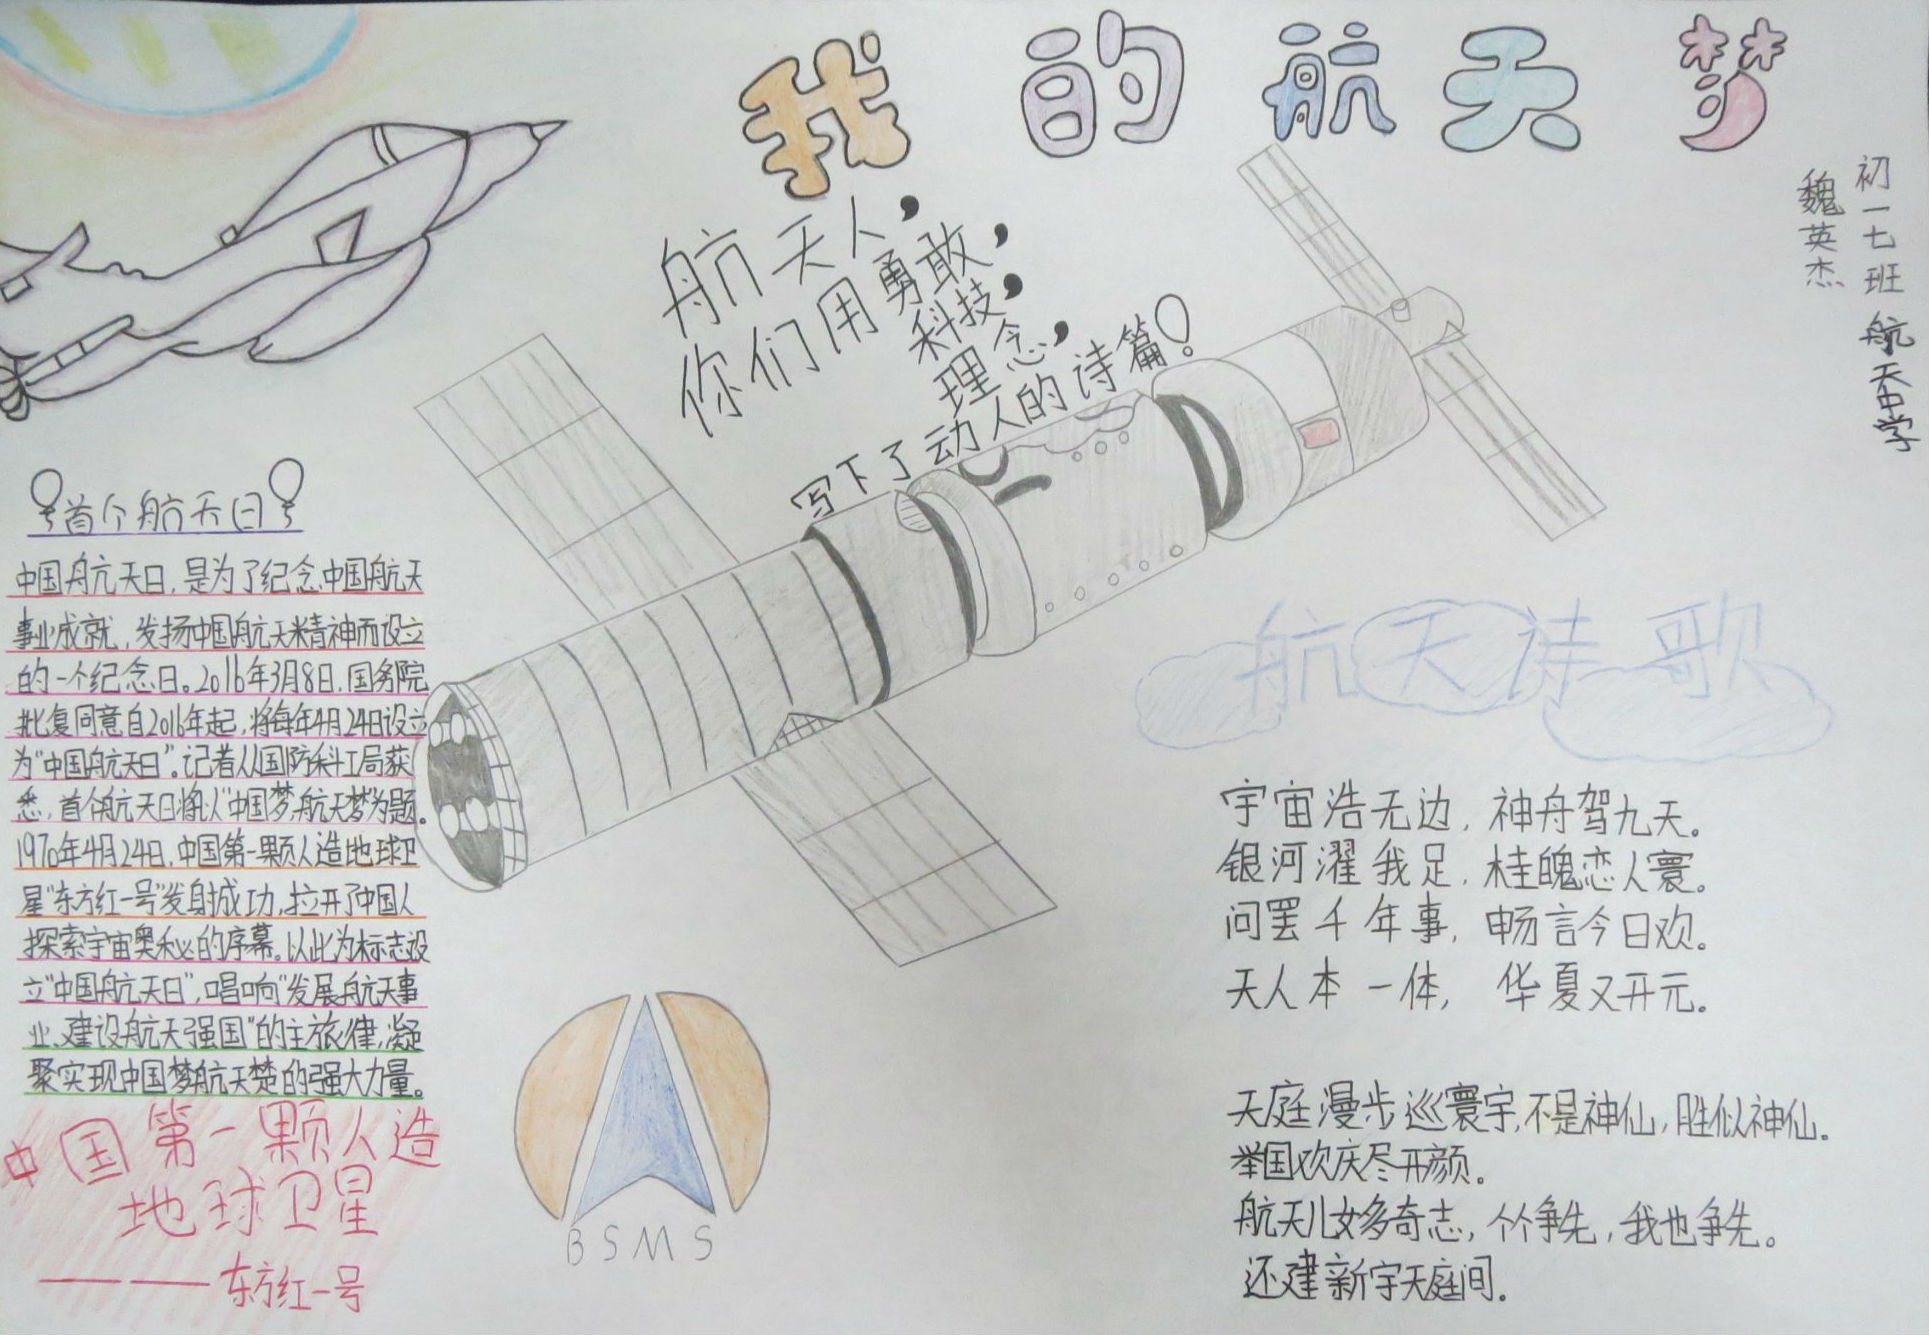 我的航天梦
初一七班 航天中学
魏英杰
航天人，
你们用勇敢，
科技，
理念，
写下了动人的诗篇！
首个航天日
中国航天日，是为了纪念中国航天
事业成就，发扬中国航天精神而设立
的一个纪念日。2016年3月8日，国务院
批复同意自2016年起，将每年4月24日设立
为“中国航天日”。记者从国防科工局获
悉，首个航天日将以“中国梦，航天梦”为题。
1970年4月24日，中国第一颗人造地球卫
星“东方红一号”发射成功，拉开了中国人
探索宇宙奥秘的序幕。以此为标志设
立“中国航天日”，唱响“发展航天事
业、建设航天强国”的主旅律，凝
聚实现中国梦航天楚的强大力量。
中国第一颗人造
地球卫星
——东方红一号
BSMS
航天诗歌
宇宙浩无边，神舟驾九天。
银河濯我足，桂魄恋人寰。
问罢千年事，畅言今日欢。
天人本一体，华夏又开元。
天庭漫步巡寰宇，不是神仙，胜似神仙。
举国欢庆尽开颜。
航天儿女多奇志，个个争先，我也争先。
还建新宇天庭间。